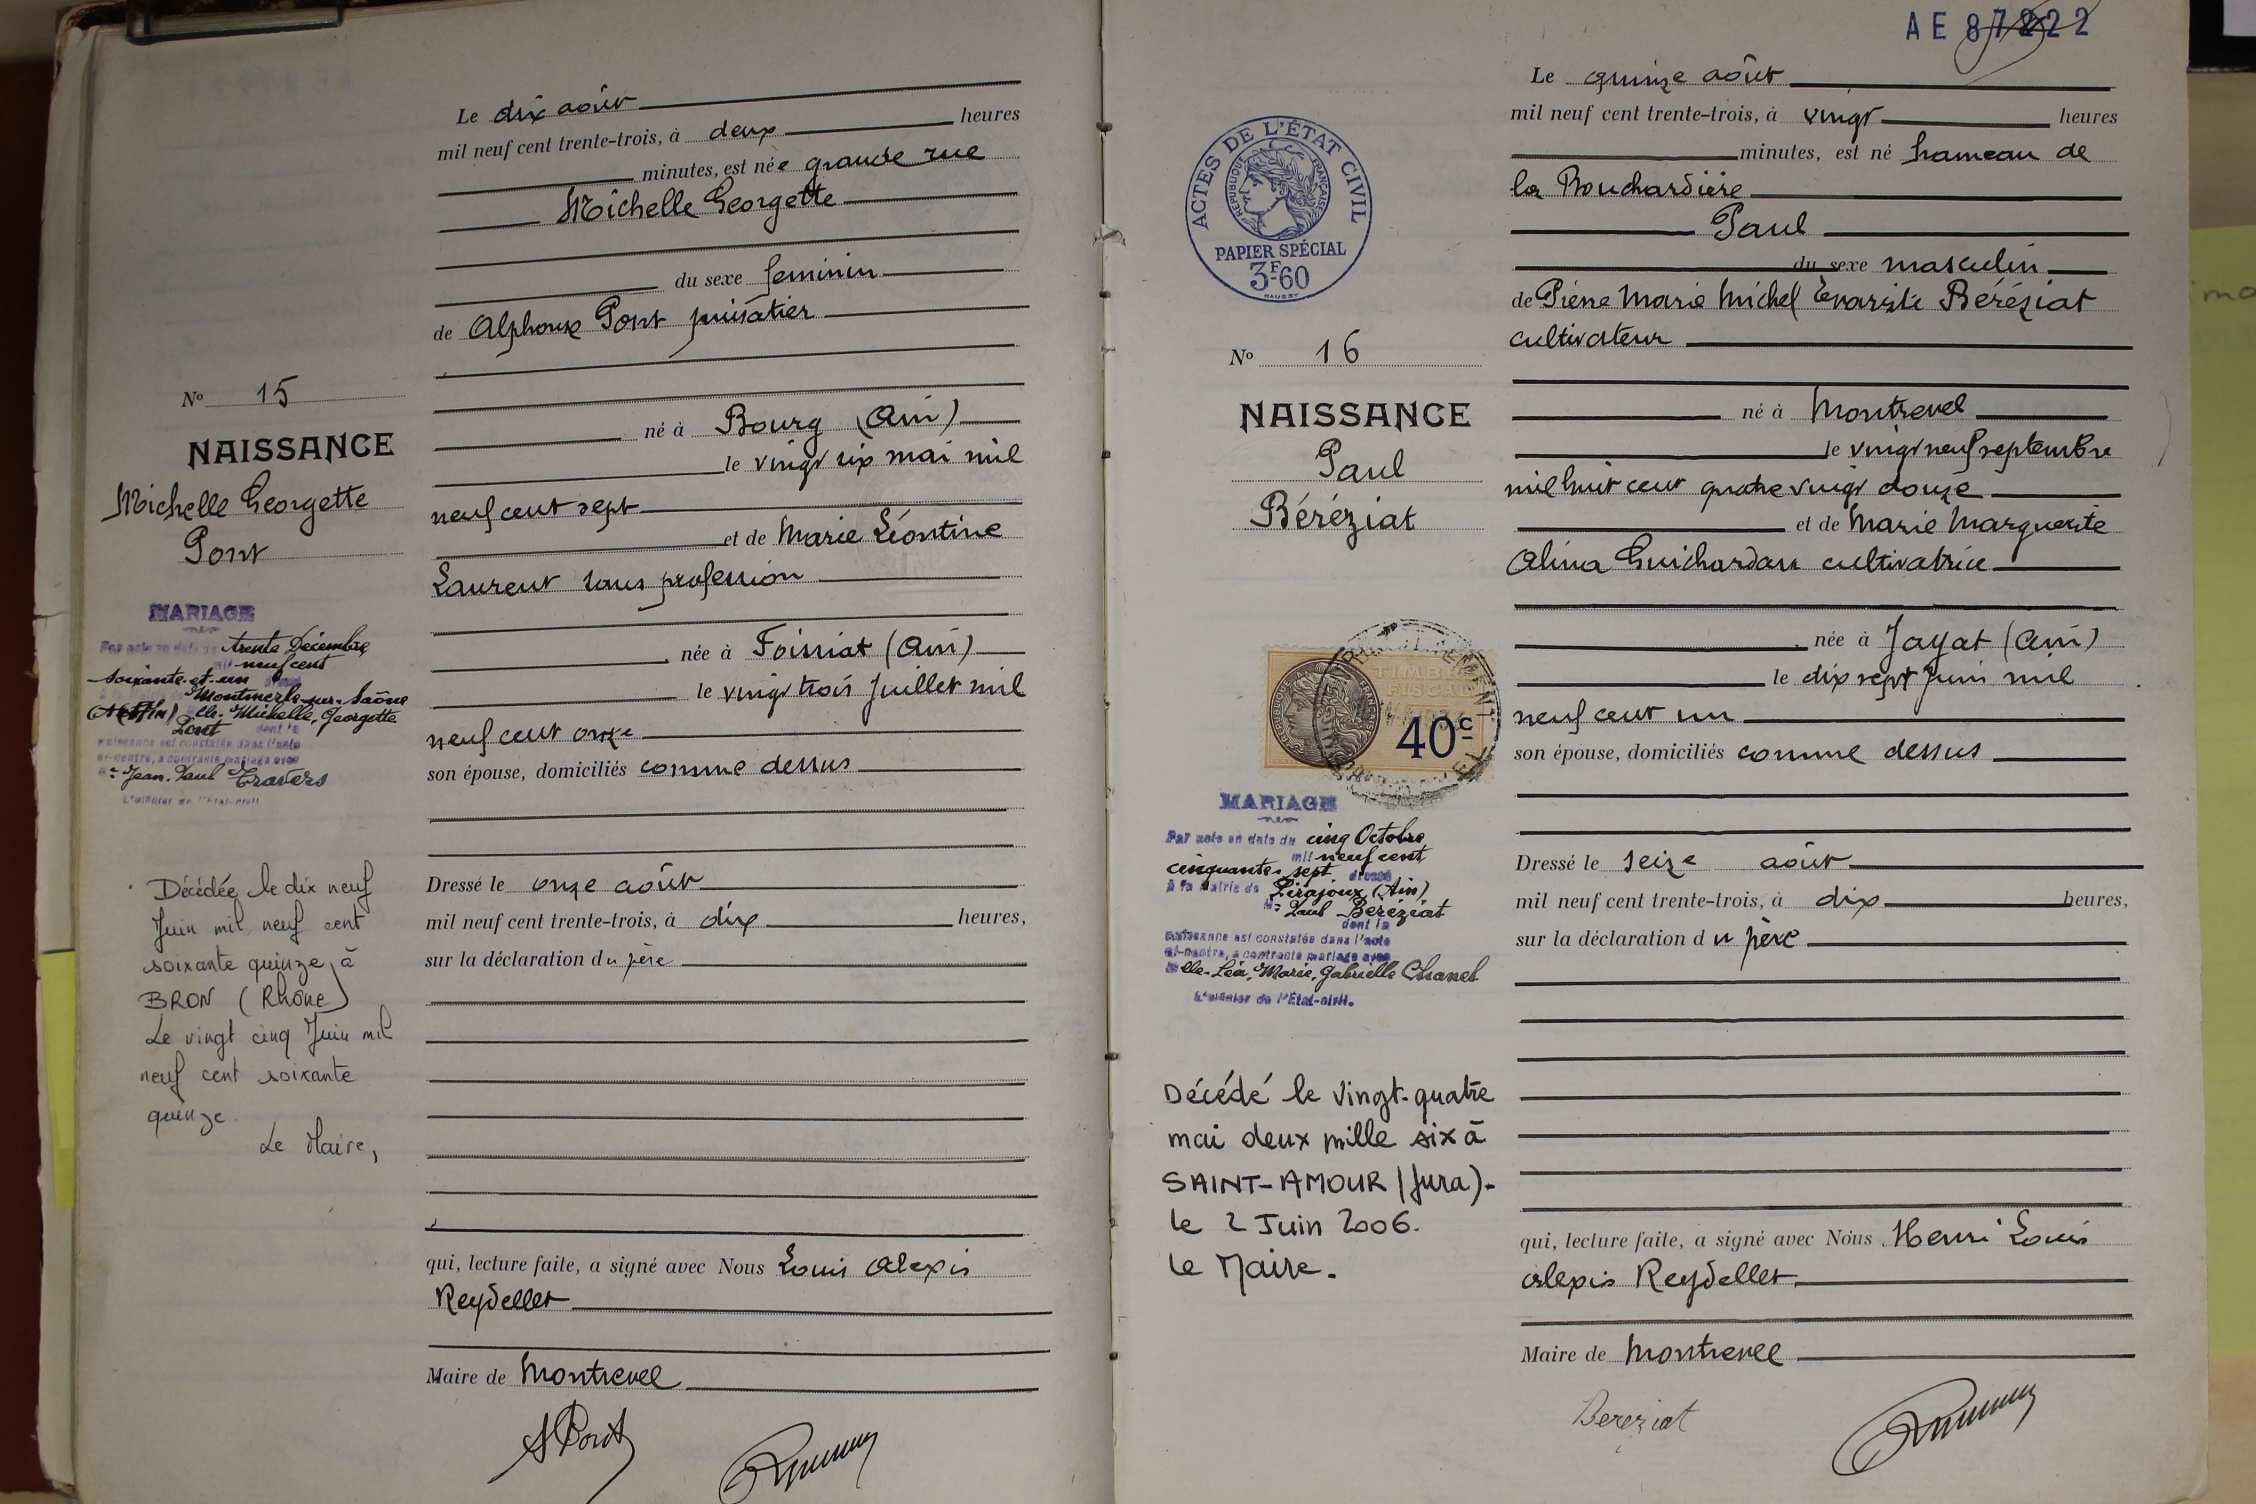 Le dix août
mil neuf cent trente-trois, à deux heures
minutes, est née grande rue
Michelle Georgette
du sexe féminin
de Alphonse Pont puisatier
né à Bourg (Ain)
le vingt six mai mil
neuf cent sept
et de Marie Léontine
Laurent sans profession
née à Foissiat (Ain)
le vingt trois Juillet mil
neuf cent onze
son épouse, domiciliés comme dessus
Dressé le onze août
mil neuf cent trente-trois, à dix heures,
sur la déclaration du père
qui, lecture faite, a signé avec Nous Louis Alexis
Reydellet
Maire de Montrevel
A Pont
No 15
NAISSANCE
Michelle Georgette
Pont
MARIAGE
Par acte en date du trente Décembre
mil neuf cent
soixante-et-un
Montmerle-sur-Saône
(Ain) Elle Michelle, Georgette
Pont dont la
naissance est constatée dans l'acte
ci-contre, a contracté mariage avec
Mr Jean-Paul Travers
L'officier de l'Etat-civil
Décédée le dix neuf
Juin mil neuf cent
soixante quinze à
BRON (Rhône)
Le vingt cinq Juin mil
neuf cent soixante
quinze.
Le Maire,
AE 87222
Le quinze août
mil neuf cent trente-trois, à vingt heures
minutes, est né hameau de
la Bouchardière
Paul
du sexe masculin
de Pierre Marie Michel Evariste Béréziat
cultivateur
né à Montrevel
le vingt neuf septembre
mil huit cent quatre vingt douze
et de Marie Marguerite
Alina Guichardan cultivatrice
née à Jayat (Ain)
le dix sept Juin mil
neuf cent un
son épouse, domiciliés comme dessus
Dressé le seize août
mil neuf cent trente-trois, à dix heures,
sur la déclaration du père
qui, lecture faite, a signé avec Nous Henri Louis
Alexis Reydellet
Maire de Montrevel
Bereziat
ACTES DE L'ÉTAT CIVIL
RÉPUBLIQUE FRANÇAISE
PAPIER SPÉCIAL
3F60
No 16
NAISSANCE
Paul
Béréziat
TIMBRE
FISCAL
40c
MARIAGE
Par acte en date du cinq Octobre
mil neuf cent
cinquante-sept dressé
à la Mairie de Pirajoux (Ain)
Mr Paul Béréziat
dont la
naissance est constatée dans l'acte
ci-contre, a contracté mariage avec
Melle Léa, Marie, Gabrielle Chanel
L'officier de l'Etat-civil.
Décédé le vingt-quatre
mai deux mille six à
SAINT-AMOUR (Jura).
le 2 Juin 2006.
Le Maire.